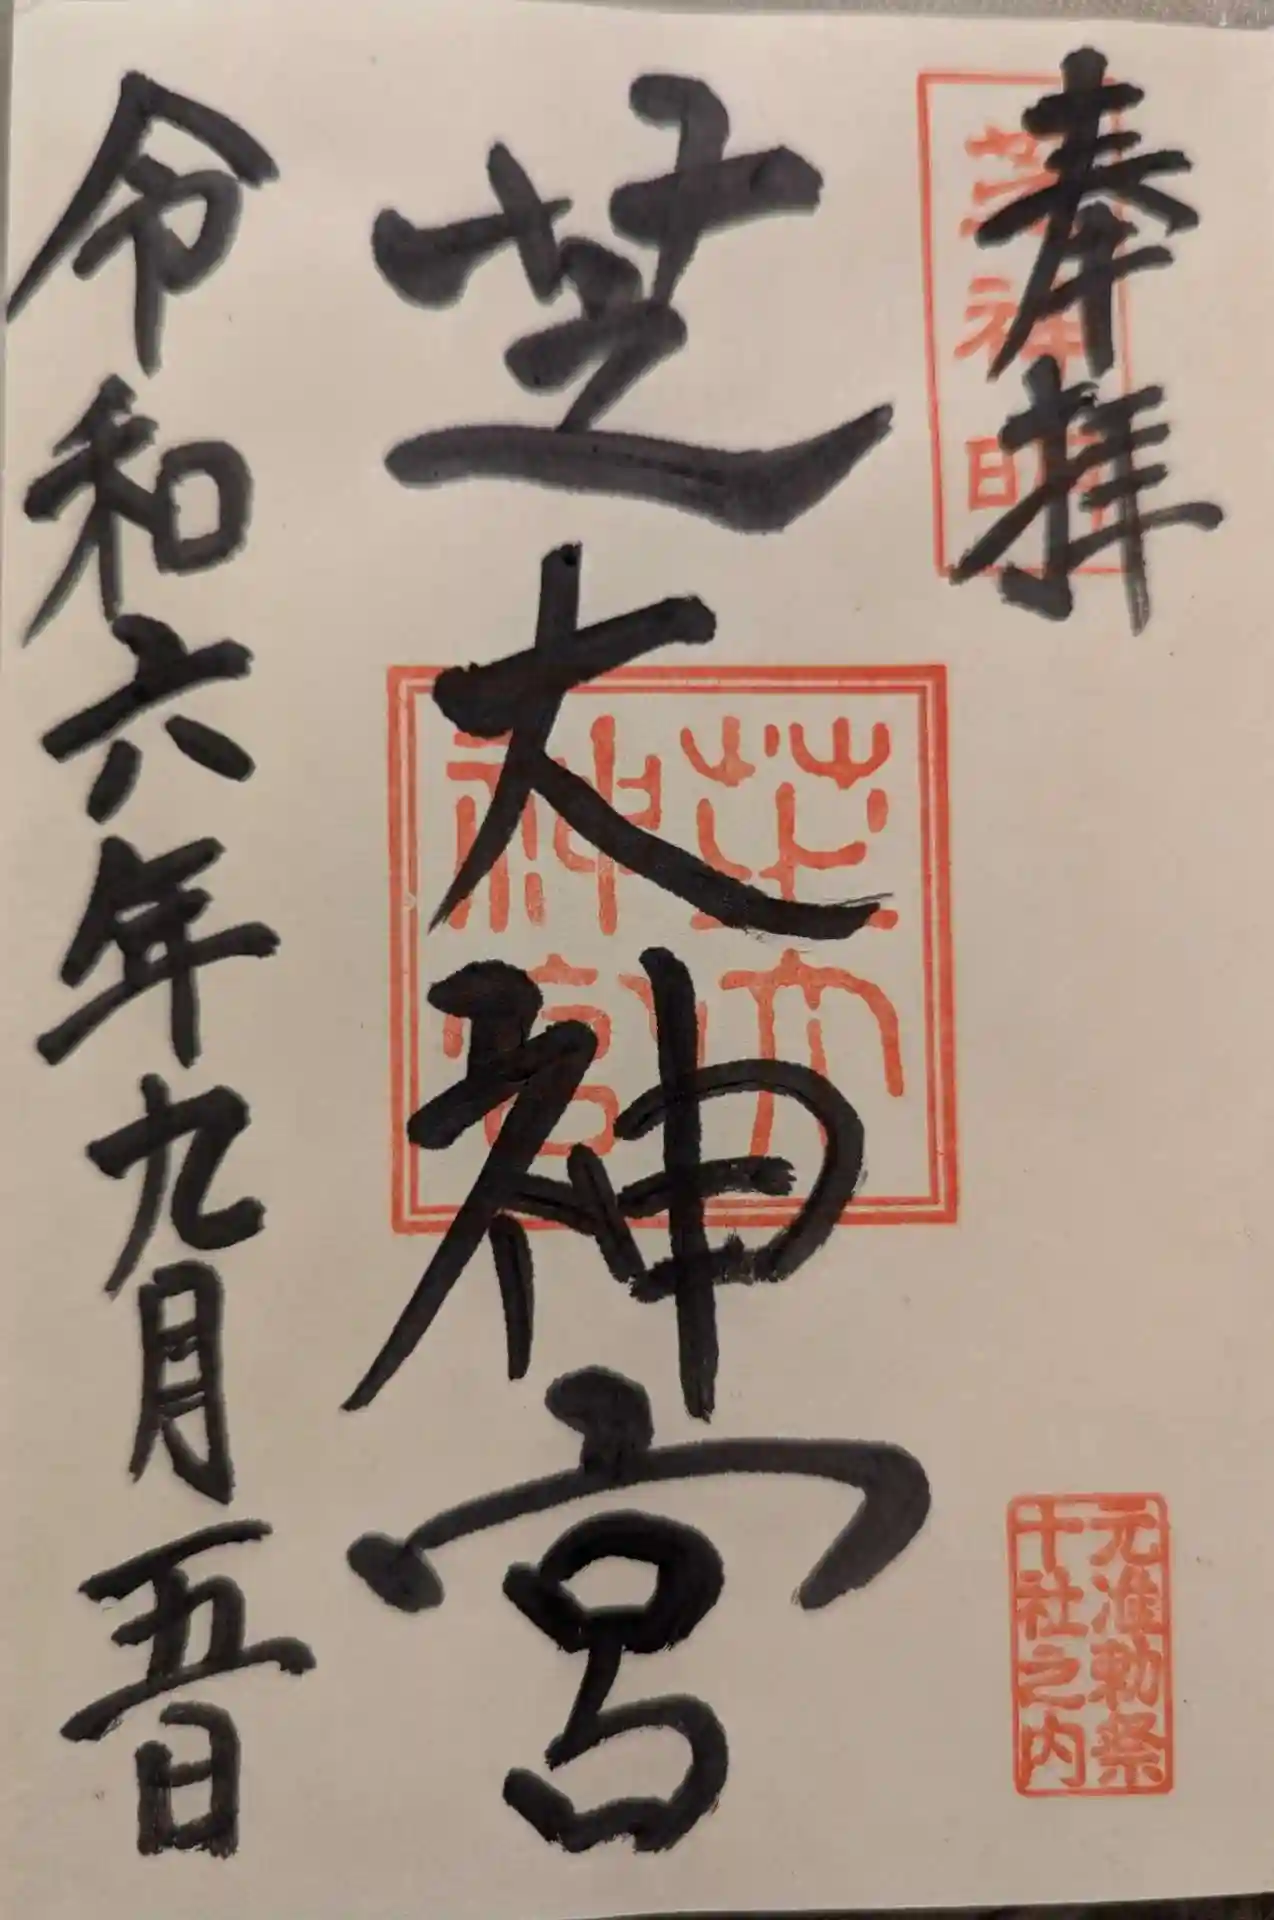 奉拝
芝神明
芝大神宮
芝大
神宮
元准勅祭
十社之内
令和六年九月五日